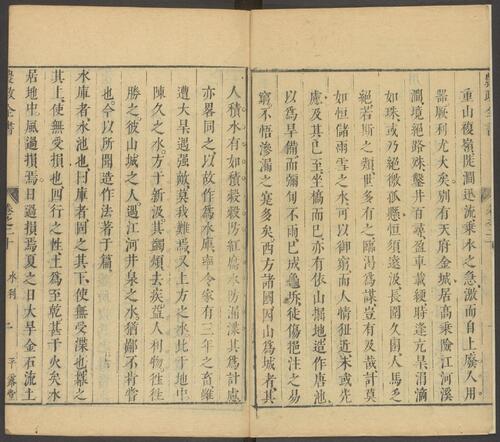 農政全書
重山複嶺陡澗迅流乘水之急激而自上廣人用
器厥利尤大矣別有天府金城居高乘險江河溪
澗境絕路殊鑿井百尋盈車載綆時逢亢旱涓滴
如珠或乃絕徼孤懸恒須遠汲長圍久困人馬乏
絕若斯之類世多有之臨渴爲謀豈有及哉計莫
如恒儲雨雪之水可以御窮而人情狃近未或先
慮及其已至坐槁而已亦有依山掘地造作唐池
以爲旱備而彌旬不雨已成龜坼徒傷挹注之易
窮不悟滲漏之寔多矣西方諸國因山爲城者其
人積水有如積穀穀防紅腐水防漏渫其爲計慮
亦畧同之以故作爲水庫率令家有三年之畜雖
遭大旱遇强敵莫我難焉又上方之水比于地中
陳久之水方于新汲其蠲煩去疾益人利物往往
勝之彼山城之人遇江河井泉之水猶鄙不肯嘗
也今以所聞造作法著于篇
水庫者水池也曰庫者固之其下使無受渫也羃之
其上使無受損也四行之性土爲至乾甚于火矣水
居地中風過損焉日過損焉夏之日大旱金石流土
農政全書 卷之二十 水利 二 平露堂